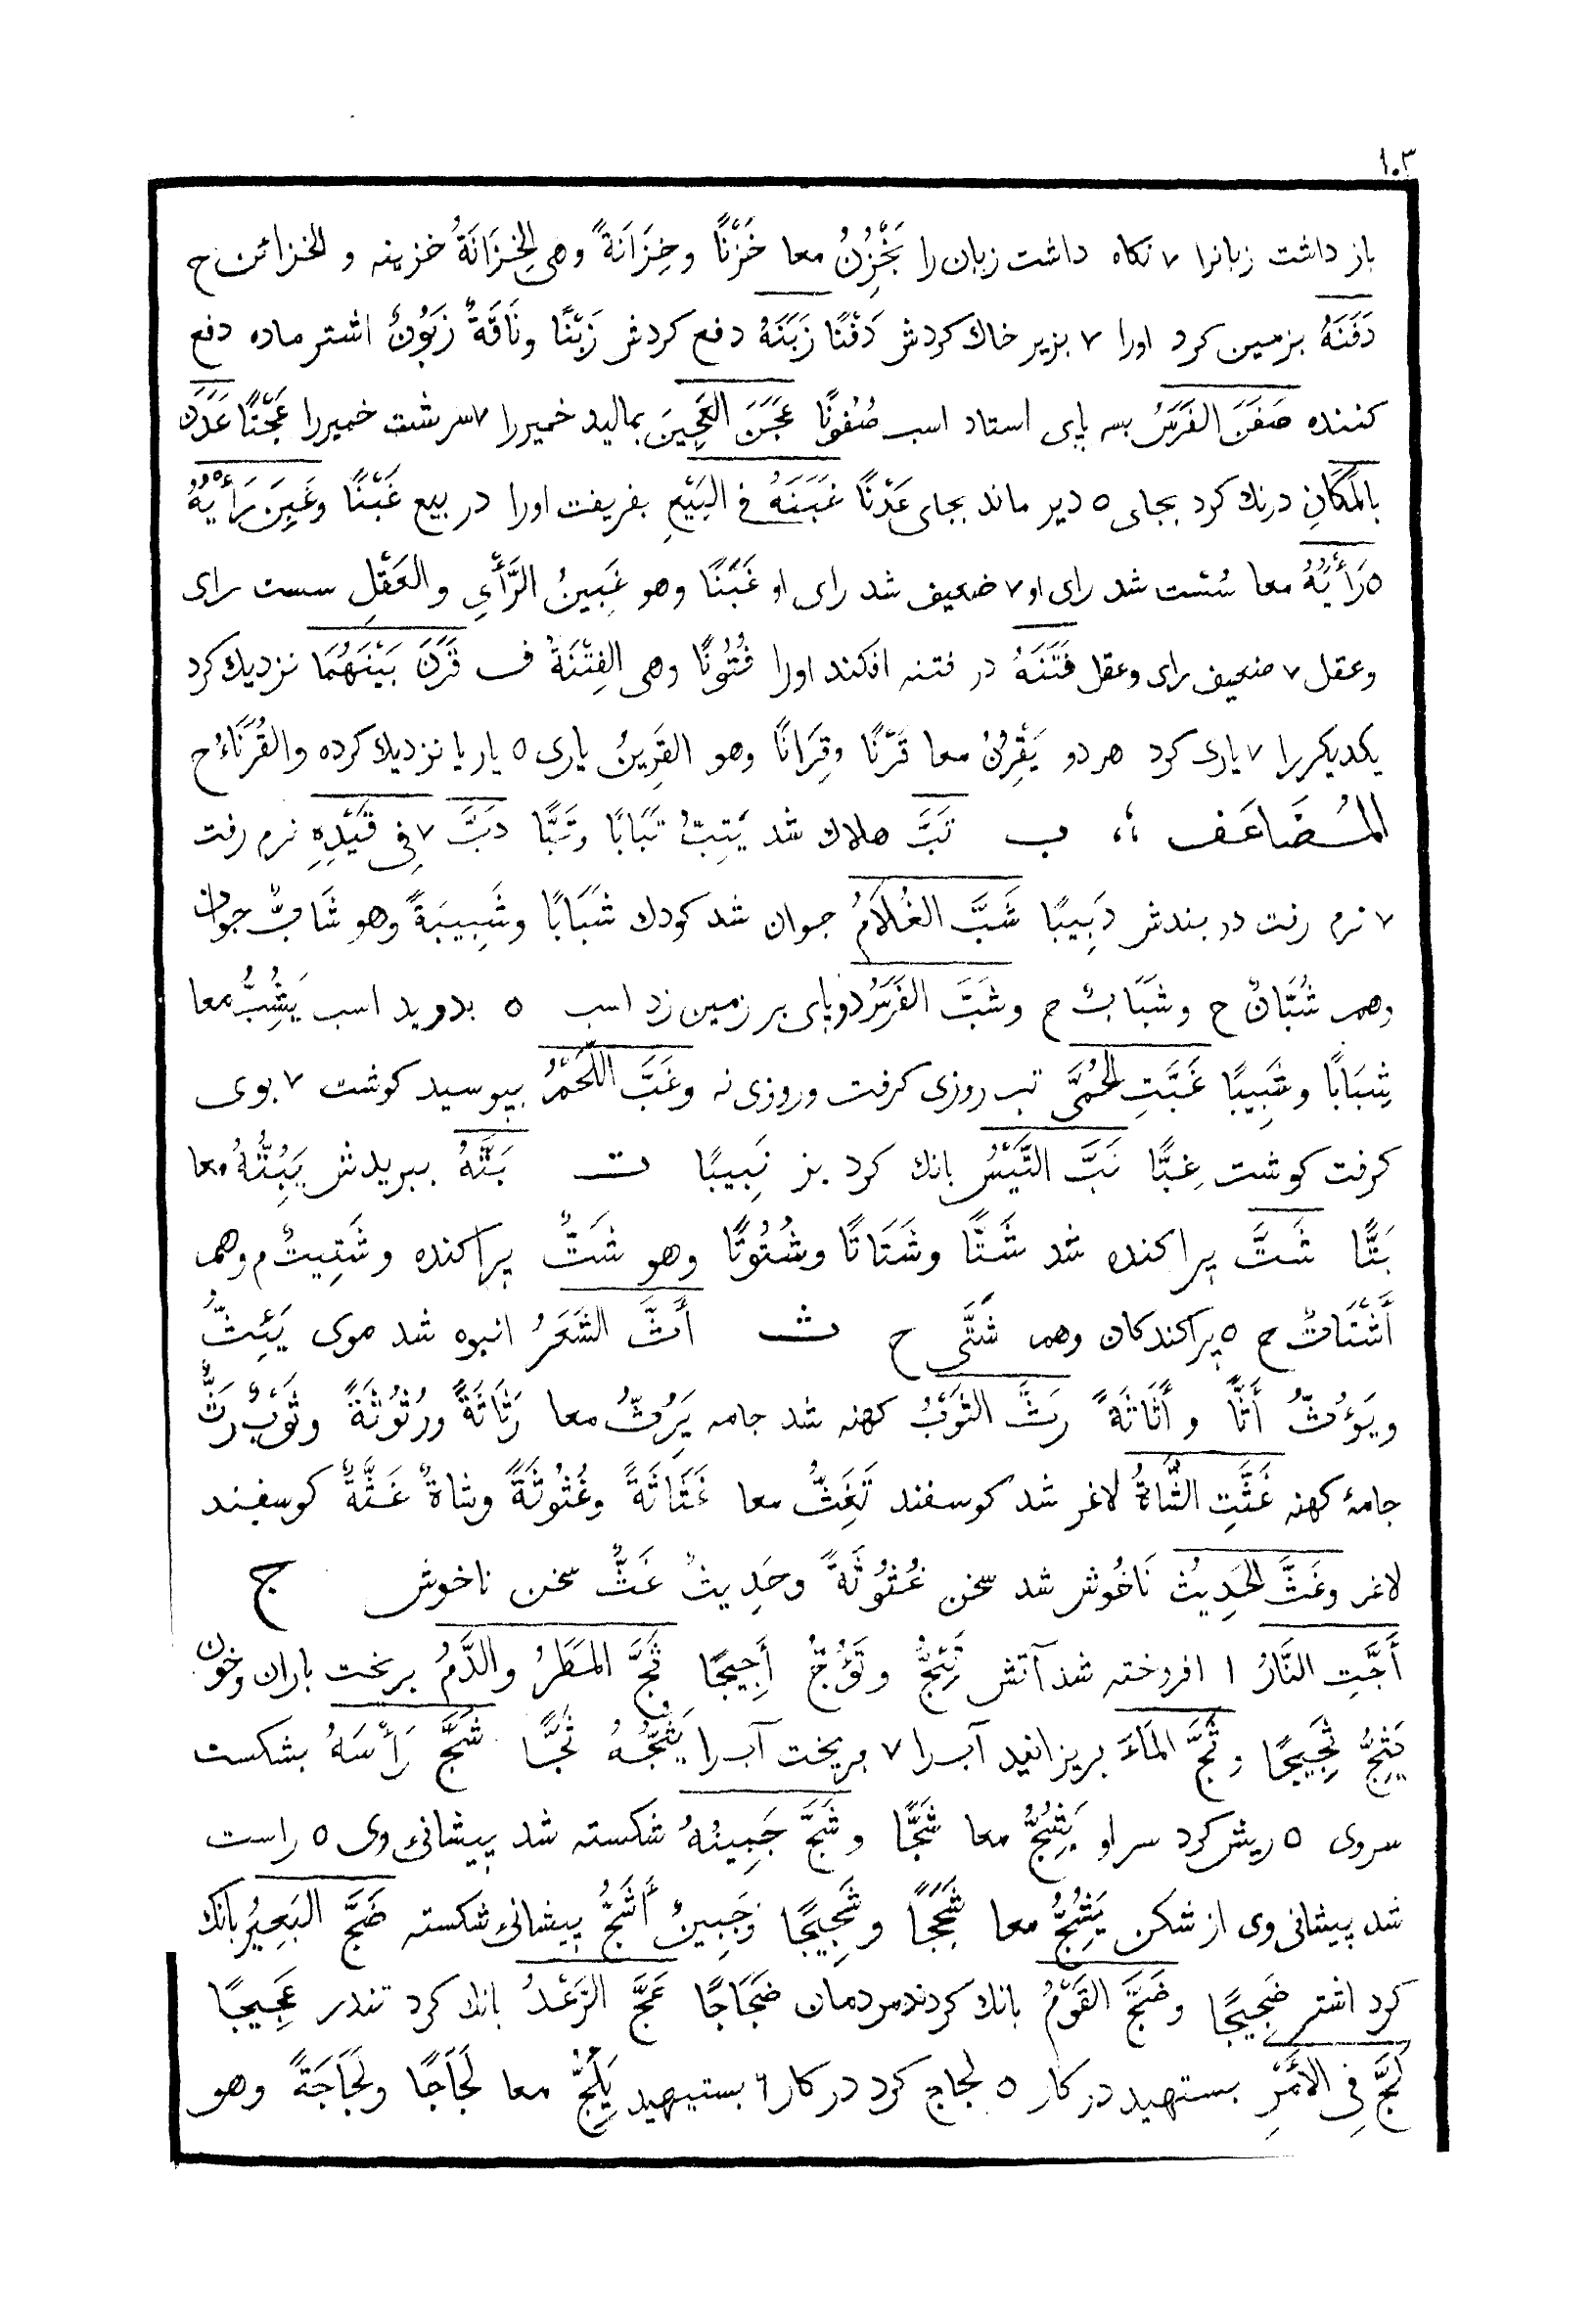 ١٠٣
باز داشت زبانرا ٧ نكاه داشت زبان را يَخْزِنُ معا خَزْنًا وخِزَانَةً وهى الخِزَانَةُ خزينه و الخزائن ح
دَفَنَهُ بزمين كرد اورا ٧ بزير خاك كردش دَفْنًا زَبَنَهُ دفع كردش زَبْنًا ونَاقَةٌ زَبُونٌ اشتر ماده دفع
كننده صَفَنَ الفَرَسُ بسه پاى استاد اسب صُفُونًا عَجَنَ العَجِينَ بماليد خميررا ٧ سرشت خميررا عَجْنًا عَدَنَ
بالمَكَانِ درنك كرد بجاى ٥ دير ماند بجاى عَدْنًا غَبَنَهُ فى البَيْعِ بفريفت اورا در بيع غَبْنًا وغَبِنَ رَأْيُهُ
٥ رَأْيَهُ معا سُست شد راى او ٧ ضعيف شد راى او غَبَنًا وهو غَبِينُ الرَّأْىِ والعَقْلِ سست راى
وعقل ٧ ضعيف راى وعقل فَتَنَهُ در فتنه افكند اورا فُتُونًا وهى الفِتْنَةُ ف قَرَنَ بَيْنَهُمَا نزديك كرد
يكديكررا ٧ يارى كرد هر دو يَقْرِنُ معا قَرْنًا وقِرَانًا وهو القَرِينُ يارى ٥ يار يا نزديك كرده والقُرَنَاءُ ح
المُضَاعَف ؛، ب تَبَّ هلاك شد يَتِبُّ تَبَابًا وتَبًّا دَبَّ ٧ فِى قَيْدِهِ نرم رفت
٧ نرم رفت در بندش دَبِيبًا شَبَّ الغُلَامُ جوان شد كودك شَبَابًا وشَبِيبَةً وهو شَابٌّ جوان
وهم شُبَّانٌ ح وشَبَابٌ ح وشَبَّ الفَرَسُ دوپاى بر زمين زد اسب ٥ بدويد اسب يَشِبُّ معا
شِبَابًا وشَبِيبًا غَبَّتِ الحُمَّى تب روزى كرفت وروزى نه وغَبَّ اللَّحْمُ ببوسيد كوشت ٧ بوى
كرفت كوشت غِبًّا نَبَّ التَّيْسُ بانك كرد بز نَبِيبًا ت بَتَّهُ ببريدش يَبُتُّهُ معا
بَتًّا شَتَّ پراكنده شد شَتًّا وشَتَاتًا وشُتُوتًا وهو شَتٌّ پراكنده وشَتِيتٌ م وهم
أَشْتَاتٌ ح ٥ پراكندكان وهم شَتَّى ح ث أَثَّ الشَعَرُ انبوه شد موى يَئِثُّ
ويَؤُثُّ أَثًّا و أَثَاثَةً رَثَّ الثَوْبُ كهنه شد جامه يَرِثُّ معا رَثَاثَةً ورُثُوثَةً وثَوْبٌ رَثٌّ
جامهٔ كهنه غَثَّتِ الشَّاةُ لاغر شد كوسفند تَغِثُّ معا غَثَاثَةً وغُثُوثَةً وشاةٌ غَثَّةٌ كوسفند
لاغر وغَثَّ الحَدِيثُ نَاخُوش شد سخن غُثُوثَةً وحَدِيثٌ غَثٌّ سخن ناخوش ج
أَجَّتِ النَّارُ ا افروخته شد آتش تَئِجُّ وتَؤُجُّ أَجِيجًا ثَجَّ المَطَرُ والدَّمُ بريخت باران وخون
يَثِجُّ ثَجِيجًا وثَجَّ المَاءَ بريزانيد آب را ٧ بريخت آب را يَثُجُّهُ ثَجًّا شَجَّ رَأْسَهُ بشكست
سروى ٥ ريش كرد سر او يَشُجُّ معا شَجًّا وشَجَّ جَبِينُهُ شكسته شد پيشانىء وى ٥ راست
شد پيشانى وى از شكن يَشُجُّ معا شَجَجًا وشَجِيجًا وَجَبِينٌ أَشَجُّ پيشانىء شكسته ضَجَّ البَعِيرُ بانك
كرد اشتر ضَجِيجًا وضَجَّ القَوْمُ بانك كردند مردمان ضَجَاجًا عَجَّ الرَّعْدُ بانك كرد تندر عَجِيجًا
لَجَّ فِى الأَمْرِ بستهيد در كار ٥ لجاج كرد در كار ٦ بستيهيد يَلِجُّ معا لَجَاجًا ولَجَاجَةً وهو